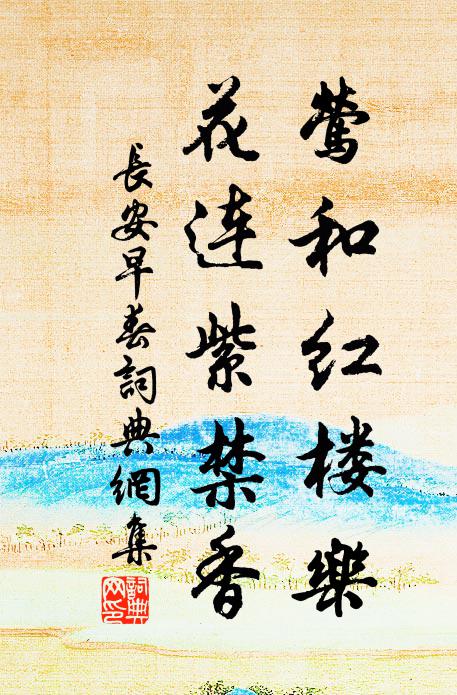 莺和红楼樂
花连紫禁香
長安早春詞典網集
詞典網印